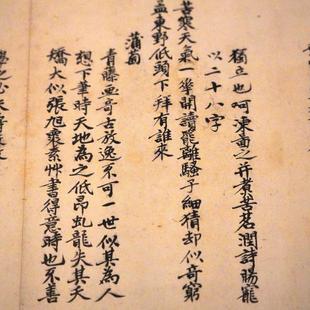 獨立也呵凍畫之并煮苦茗潤詩腸寵
以二十八字
苦寒天氣一華開讀罷離騷子細猜却似奇窮
孟東野低頭下拜有誰來
蒲萄
青藤画奇古放逸不可一世似其為人
想下筆時天地為之低昂虬龍失其天
矯大似張旭褱素艸書得意時也不善